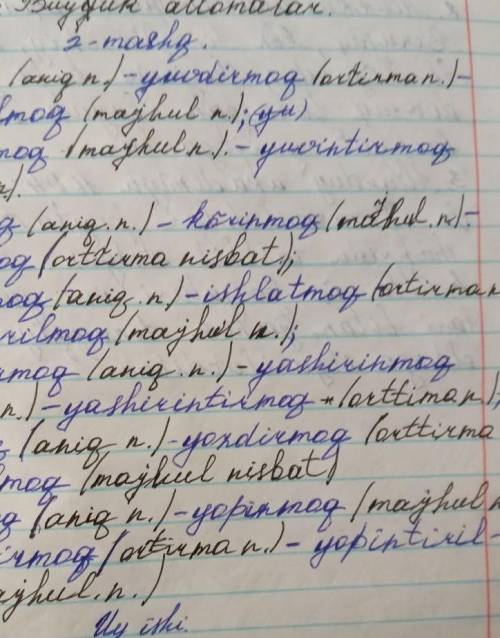 Buyuk allomalar.
2-mashq.
(aniq n.) - yuvdirmoq (ortirma n.) -
lmoq (majhul n.); (yu)
moq (majhul n.). - yuvintirmoq
n).
q (aniq. n.) - körinmoq (majhul. n) -
oq (orttirma nisbat);
moq (aniq n.) - ishlatmoq (ortirma n
irilmoq (majhul n.);
rmoq (aniq. n.) - yashirinmoq
n.) - yashirintirmoq - (orttima n);
(aniq n.) - yozdirmoq (orttirma
lmoq (majhul nisbat)
q (aniq n.) - yopinmoq (majhul n
irmoq (ortirma n.) - yopintiril -
ajhul. n.)
Uy ishi.